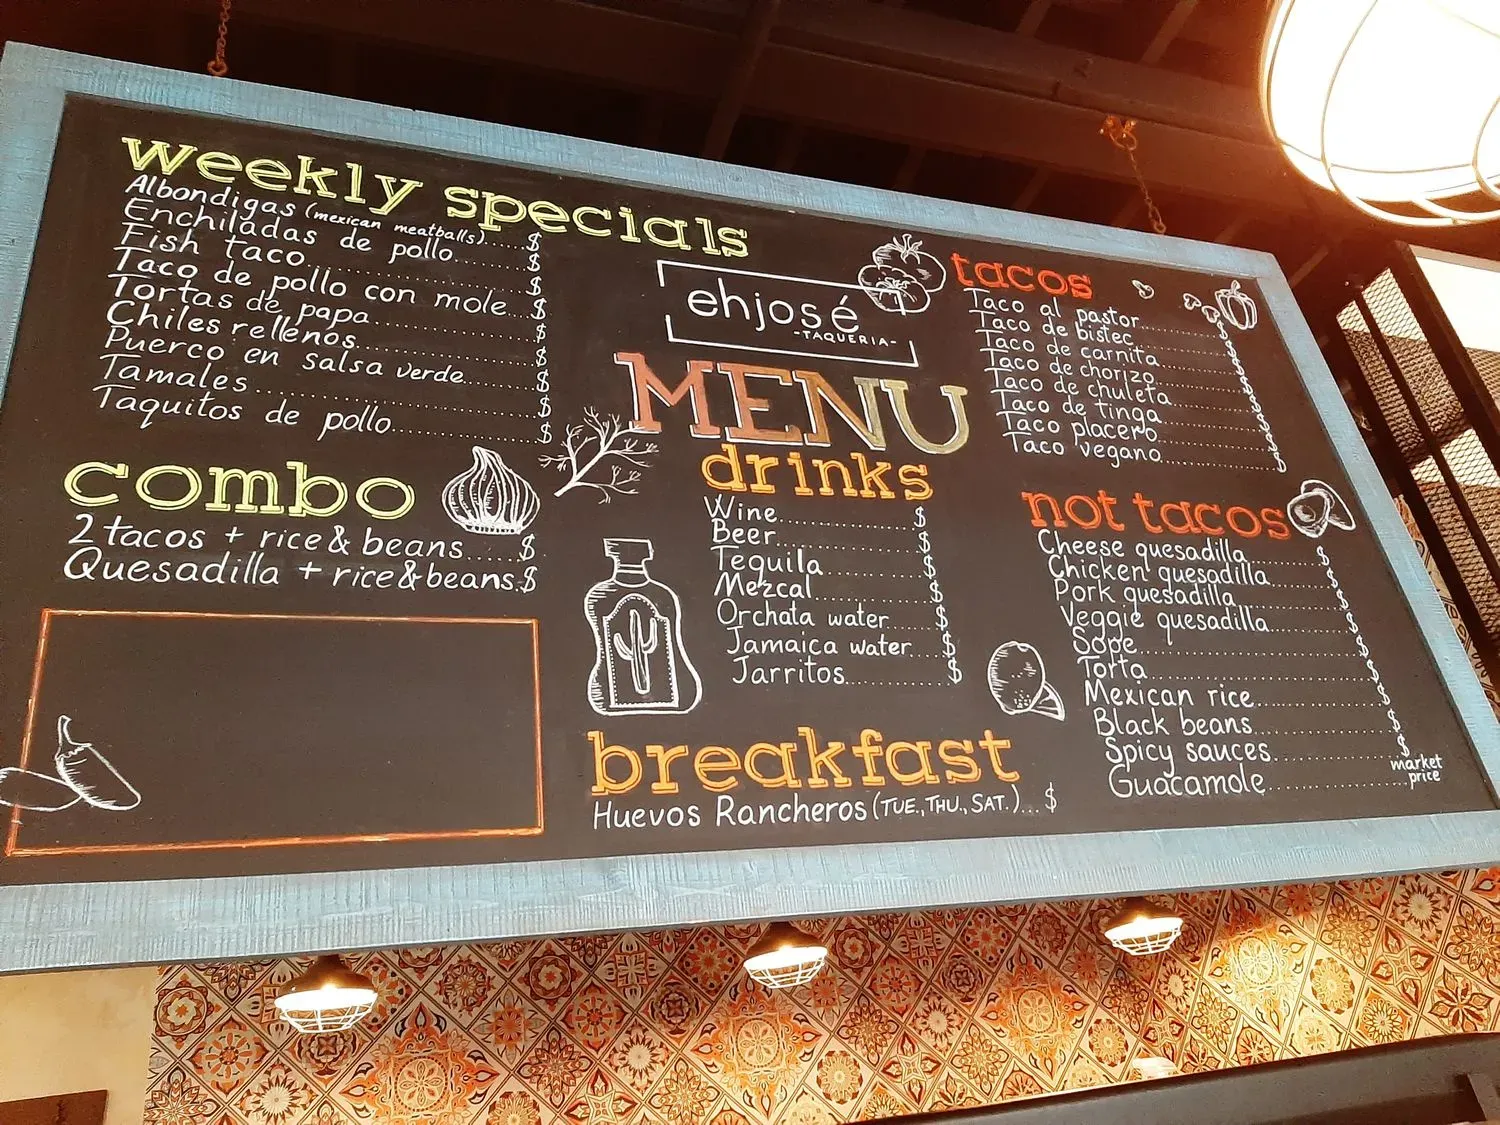 weekly specials
Albondigas (mexican meatballs)......$
Enchiladas de pollo..........$
Fish taco..........$
Taco de pollo con mole...$
Tortas de papa..........$
Chiles rellenos..........$
Puerco en salsa verde..........$
Tamales..........$
Taquitos de pollo..........$
combo
2 tacos + rice & beans.....$
Quesadilla + rice & beans..$
ehjosé
-TAQUERIA-
MENU
drinks
Wine..........$
Beer..........$
Tequila..........$
Mezcal..........$
Orchata water.....$
Jamaica water....$
Jarritos..........$
breakfast
Huevos Rancheros (TUE., THU., SAT.)... $
tacos
Taco al pastor..........$
Taco de bistec..........$
Taco de carnita..........$
Taco de chorizo..........$
Taco de chuleta..........$
Taco de tinga..........$
Taco placero..........$
Taco vegano..........$
not tacos
Cheese quesadilla..........$
Chicken quesadilla..........$
Pork quesadilla..........$
Veggie quesadilla..........$
Sope..........$
Torta..........$
Mexican rice..........$
Black beans..........$
Spicy sauces..........$
Guacamole..........market price